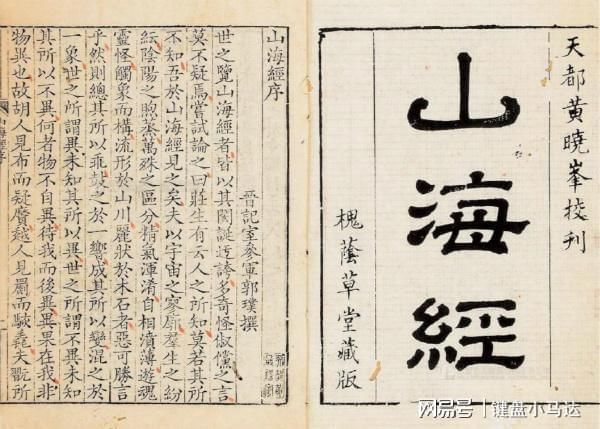 天都黃曉峯校刊
山海經
槐蔭草堂藏版
山海經序
晉記室參軍郭璞撰
世之覽山海經者皆以其閎誕迂誇多奇怪俶儻之言
莫不疑焉嘗試論之曰莊生有云人之所知莫若其所
不知吾於山海經見之矣夫以宇宙之寥廓羣生之紛
紜陰陽之煦蒸萬殊之區分精氣渾淆自相濆薄遊魂
靈怪觸象而構流形於山川麗狀於木石者惡可勝言
乎然則總其所以乖鼓之於一響成其所以變混之於
一象世之所謂異未知其所以異世之所謂不異未知
其所以不異何者物不自異待我而後異異果在我非
物異也故胡人見布而疑黂越人見罽而駭毳夫翫所
网易号 | 键盘小马达